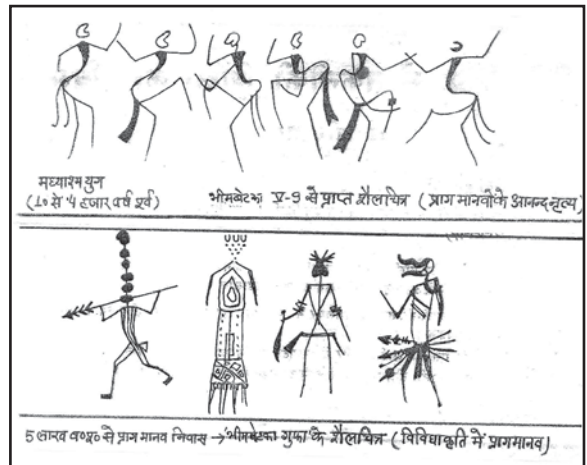 मध्याश्म युग
(10 से 4 हजार वर्ष पूर्व)
भीमबेटका V-9 से प्राप्त शैलचित्र (प्राग मानवों के आनन्द नृत्य)
5 लाख व०पू० से प्राग मानव निवास → भीमबेटका गुफा के शैलचित्र (विविधाकृति में प्रागमानव)